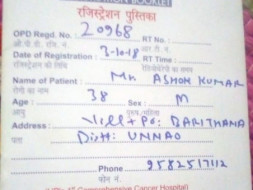 रजिस्ट्रेशन पुस्तिका
OPD Regd. No. : 20968 RT No. :
Date of Registration : 3-10-18 RT Time :
Name of Patient : Mr ASHOK KUMAR
रोगी का नाम
Age : 38 Sex : M
आयु पुरुष/महिला
Address : Vill+Po: BARITHANA
पता Distt: UNNAO
Phone 9582517112
फोन नं.
Comprehensive Cancer Hospital)